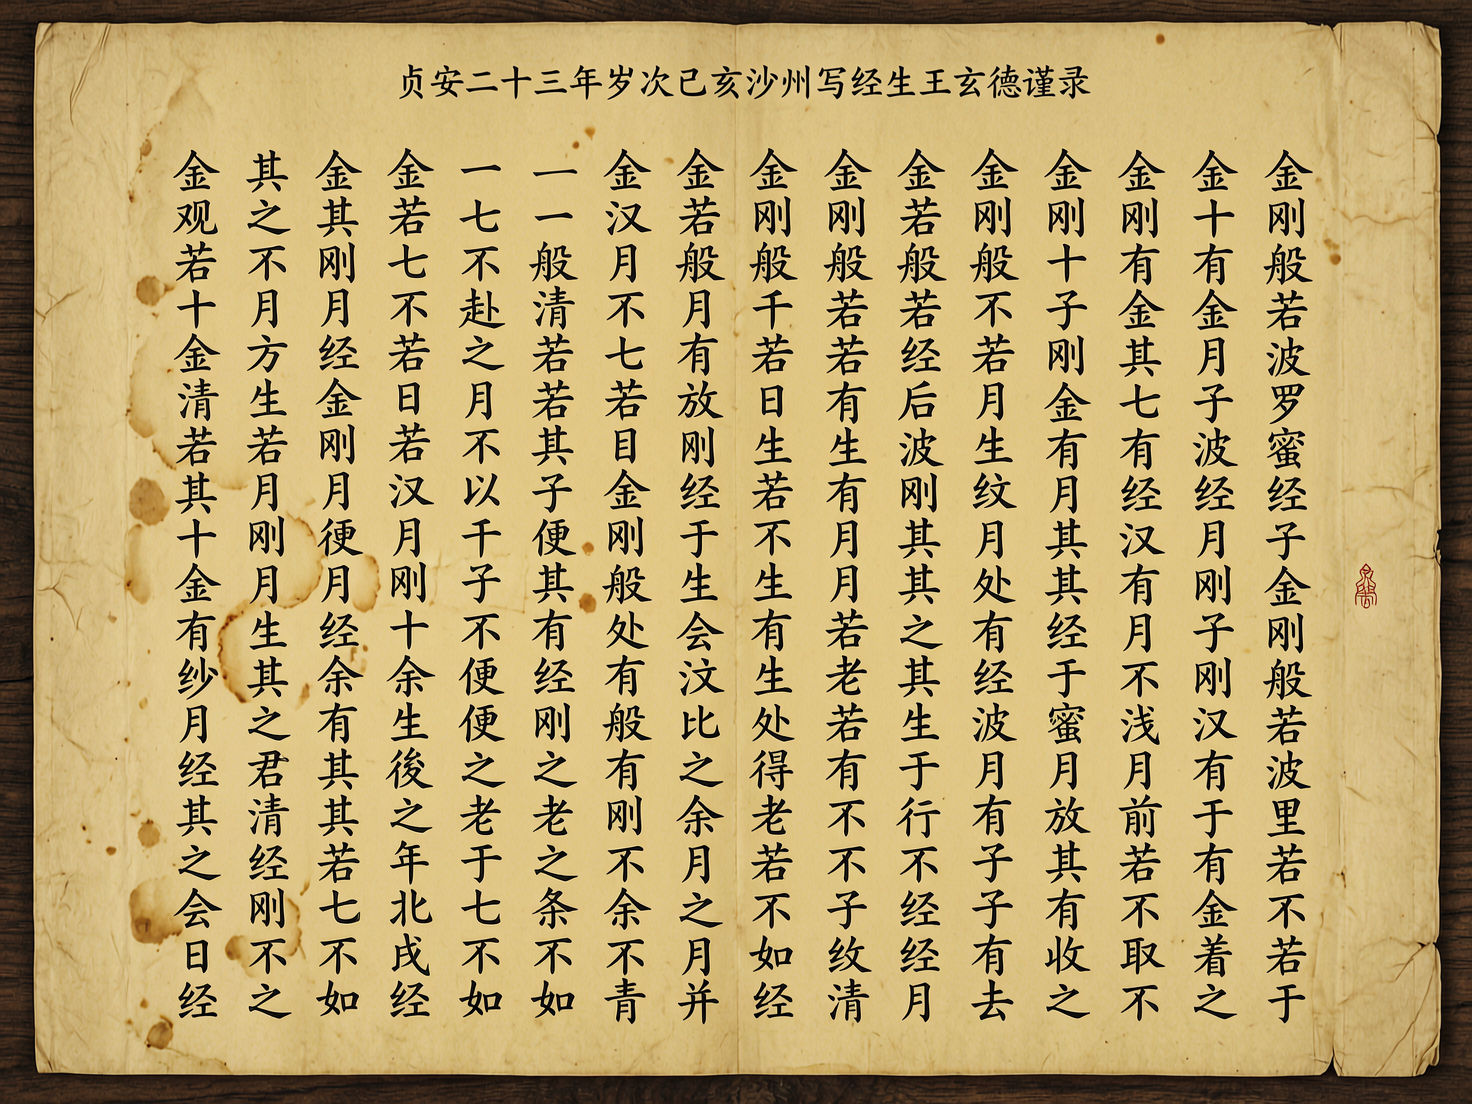 贞安二十三年岁次己亥沙州写经生王玄德谨录
金刚般若波罗蜜经子金刚般若波里若不若于
金十有金月子波经月刚子刚汉有于有金着之
金刚有金其七有经汉有月不浅月前若不取不
金刚十子刚金有月其其经于蜜月放其有收之
金刚般不若月生纹月处有经波月有子子有去
金若般若经后波刚其其之其生于行不经经月
金刚般若若有生有月月若老若有不不子纹清
金刚般千若日生若不生有生处得老若不如经
金若般月有放刚经于生会汶比之余月之月并
金汉月不七若目金刚般处有般有刚不余不青
一一般清若若其子便其有经刚之老之条不如
一七不赴之月不以千子不便便之老于七不如
金若七不若日若汉月刚十余生後之年北戌经
金其刚月经金刚月便月经余有其其若七不如
其之不月方生若月刚月生其之君清经刚不之
金观若十金清若其十金有纱月经其之会日经